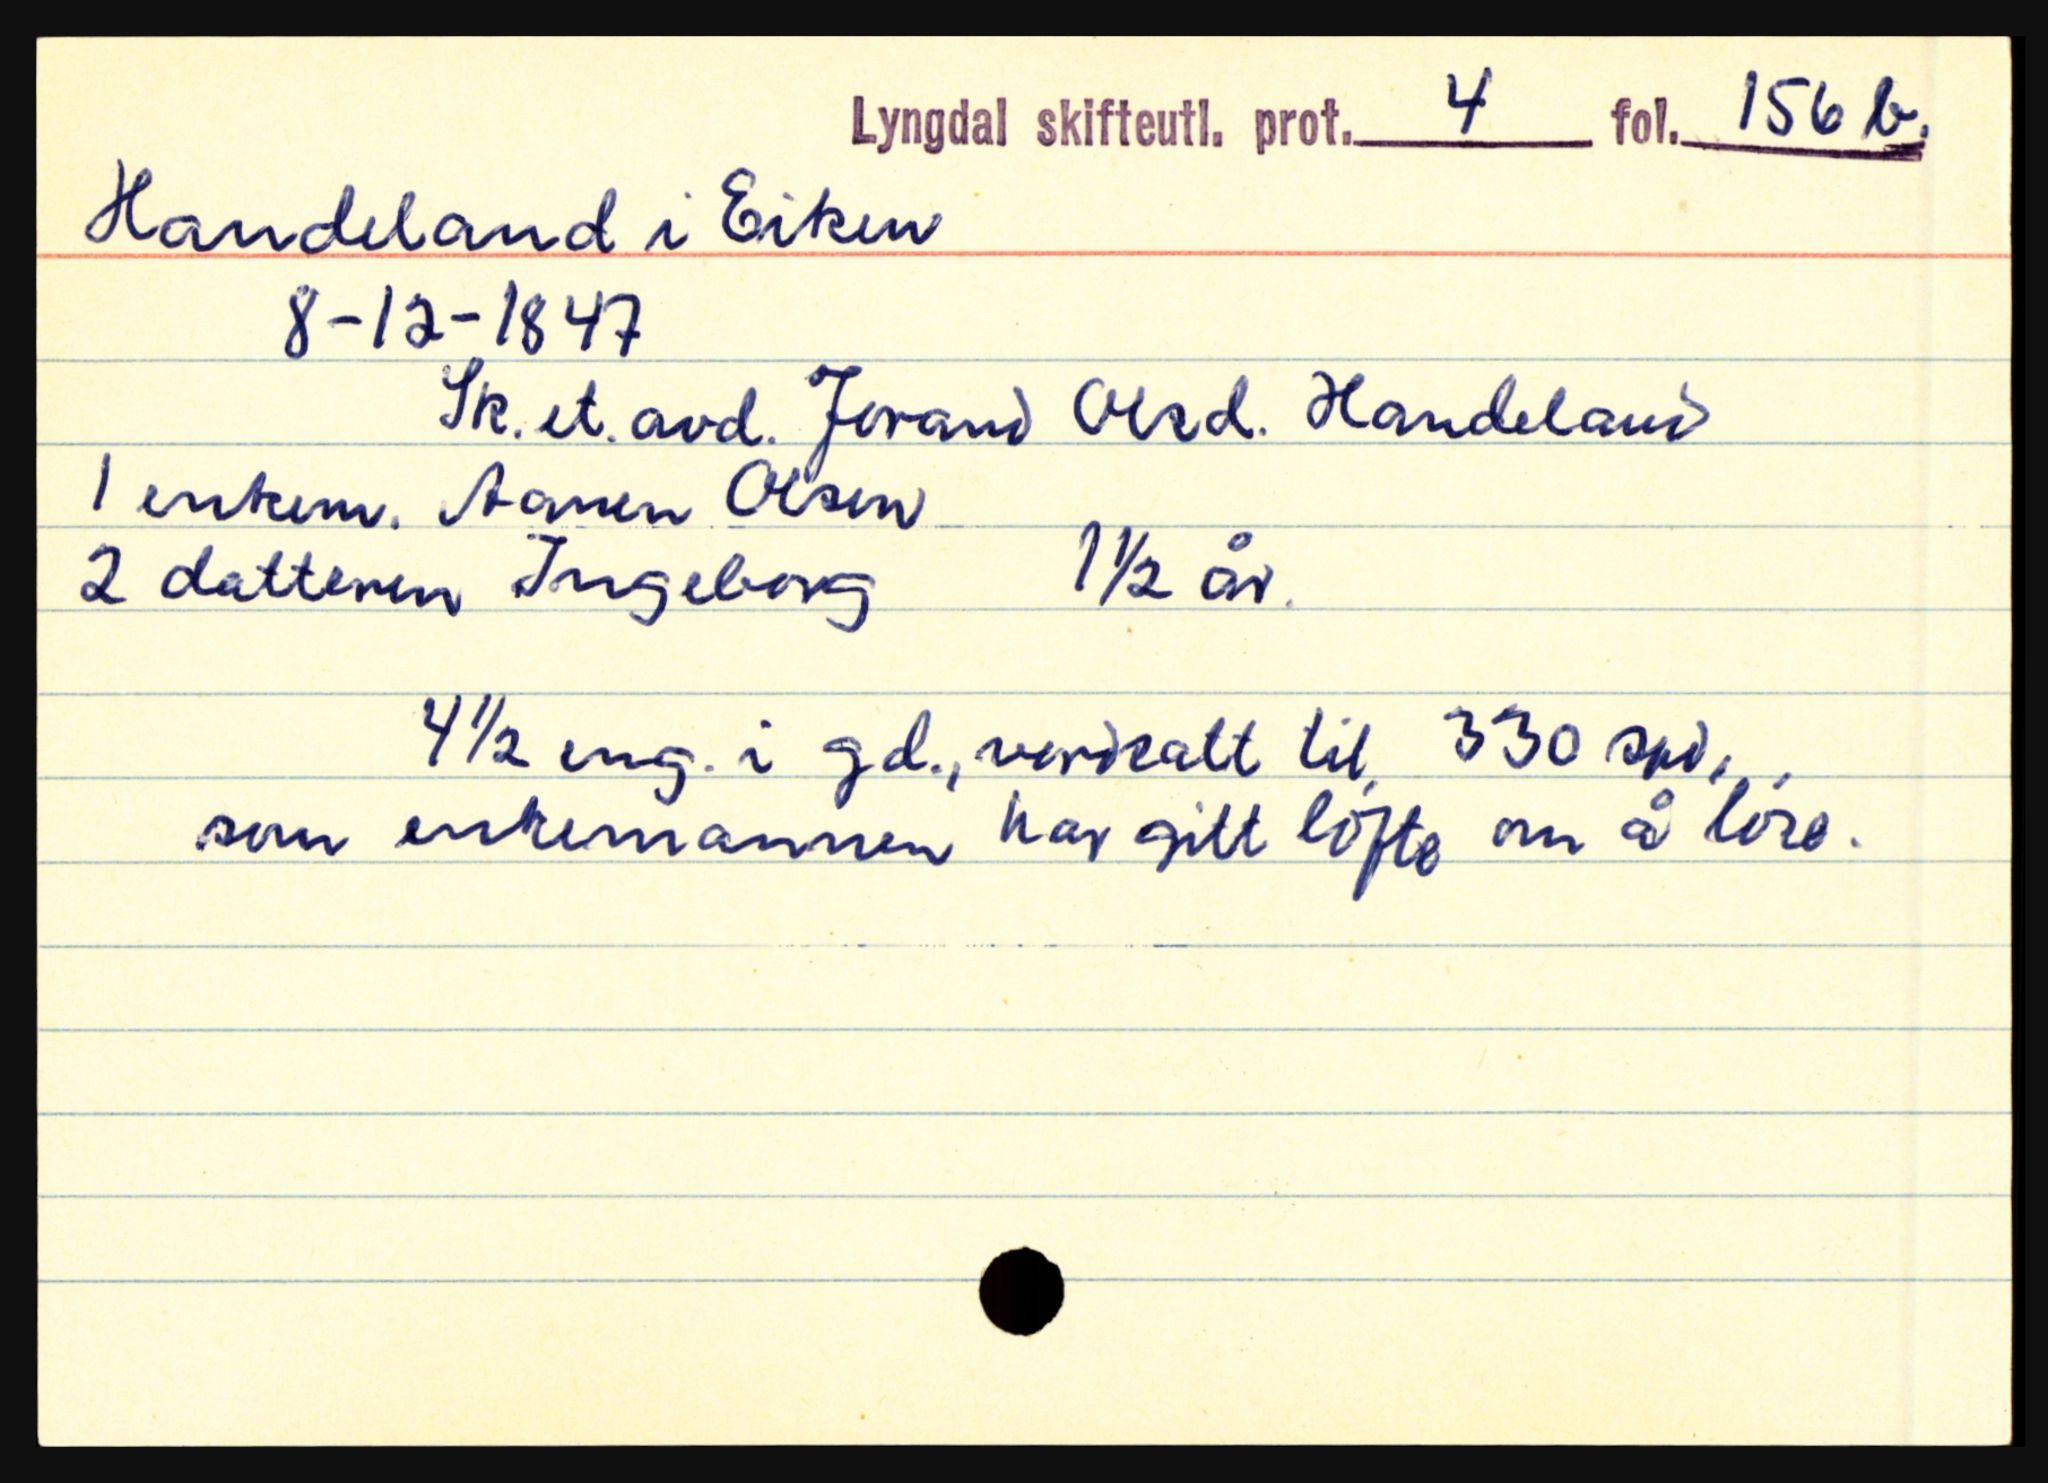 Lyngdal skifteutl. prot. 4 fol. 156 b.
Handeland i Eiken
8-12-1847
Sk. et. avd. Jorand Olsd. Handeland
1 enkem. Aanen Olsen
2 datteren Ingeborg 1 1/2 år.
4 1/2 eng. i gd., verdsatt til 330 spd.,
som enkemannen har gitt löfte om å löse.